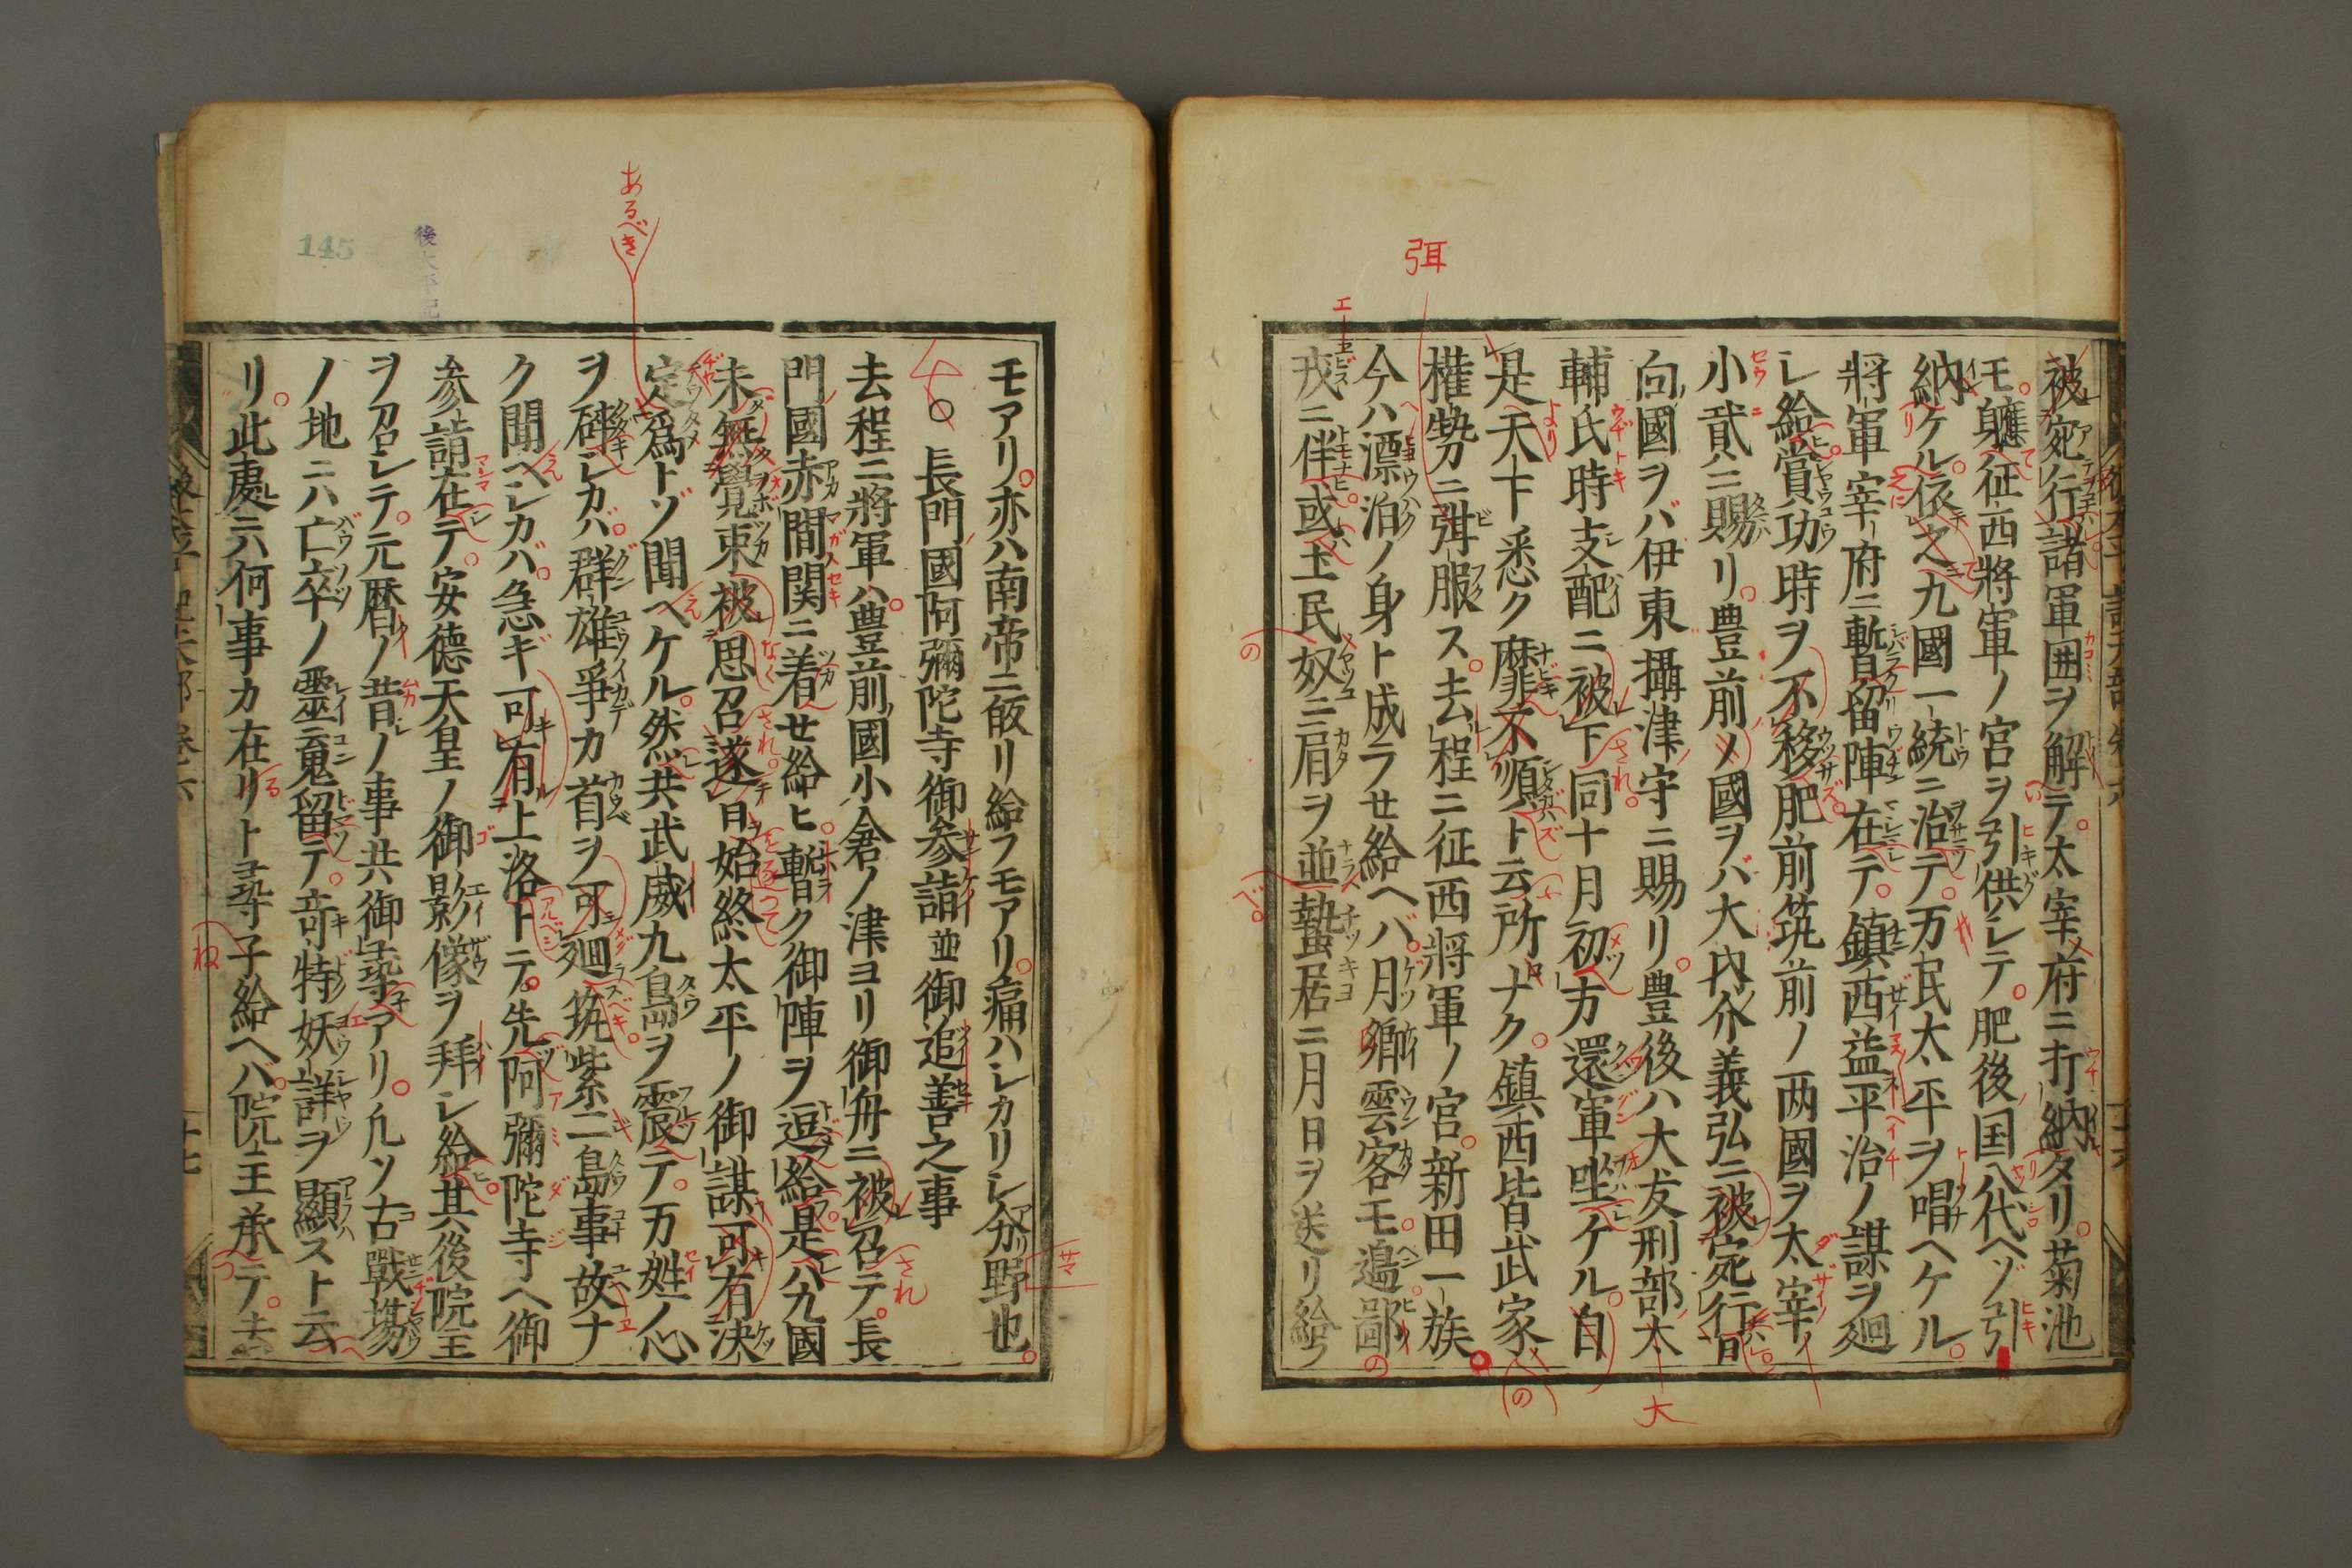 被宛行諸軍囲ヲ解テ太宰府ニ打納タリ菊池
モ軈征西將軍ノ宮ヲ引供シテ肥後国八代ヘゾ引
納ケル依之九國一統ニ治テ万民太平ヲ唱ヘケル
將軍宰府ニ暫留陣在テ鎮西益平治ノ謀ヲ廻
シ給賞功時ヲ不移肥前筑前ノ两國ヲ太宰
小貳ニ賜リ豊前ノ國ヲバ大内介義弘ニ被宛行日
向國ヲバ伊東攝津守ニ賜リ豊後ハ大友刑部太
輔氏時支配ニ被下同十月初方還軍坐ケル自
是天下悉ク靡不順ト云所ナク鎮西皆武家
權勢ニ弭服ス去程ニ征西將軍ノ宮新田一族
今ハ漂泊ノ身ト成ラせ給ヘバ月卿雲客モ邉鄙
戎ニ伴或土民奴ニ肩ヲ並蟄居ニ月日ヲ送リ給
モアリ亦ハ南帝ニ皈リ給フモアリ痛ハシカリシ分野也
○長門國阿彌陀寺御参詣並御追善之事
去程ニ將軍ハ豊前國小倉ノ津ヨリ御舟ニ被召テ長
門國赤間関ニ着せ給ヒ暫ク御陣ヲ逗給是ハ九國
未無覺束被思召遂日始終太平ノ御謀可有決
定爲トゾ聞ヘケル然共武威九島ヲ震テ万姓ノ心
ヲ砕シガバ群雄爭カ首ヲ可廻筑紫二島事故ナ
ク聞ヘシカバ急ギ可有上洛トテ先阿彌陀寺ヘ御
参詣在テ安德天皇ノ御影像ヲ拜シ給其後院主
ヲ召シテ元暦ノ昔ノ事共御尋アリ凡ソ古戰塲
ノ地ニハ亡卒ノ靈䰟留テ竒特妖詳ヲ顯スト云ヘ
リ此處ニハ何事カ在リト尋子給ヘバ院主承テ去
弭
あるべき
145
後太平記